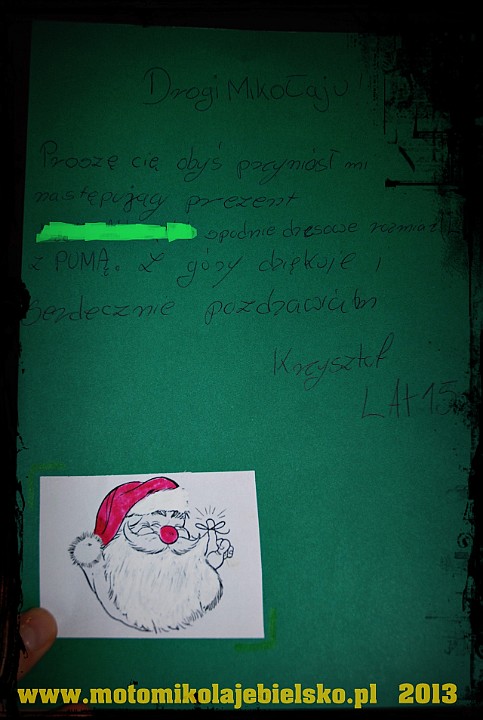 Drogi Mikołaju!
Proszę cię abyś przyniósł mi
następujący prezent
spodnie dresowe rozmiar
z PUMĄ. Z góry dziękuje i
Serdecznie pozdrawiam
Krzysztof
LAt 15
www.motomikolajebielsko.pl 2013